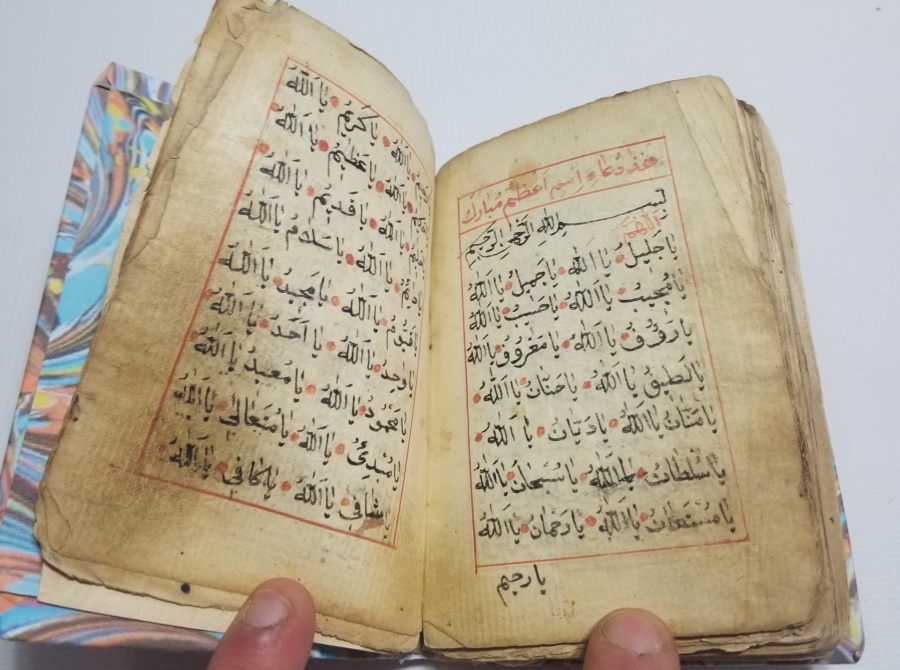 دُعَاءِ اِسْمِ اَعْظَمْ مُبَارَكْ
بسم الله الرحمن الرحيم
اَللّٰهُمَّ
يا جليل يا الله يا جميل يا الله
يا مجيب يا الله يا حسيب يا الله
يا رؤف يا الله يا معروف يا الله
يا لطيف يا الله يا حنان يا الله
يا منان يا الله يا ديان يا الله
يا سلطان يا الله يا سبحان يا الله
يا مستعان يا الله يا رحمان يا الله
يا رحيم
يا الله يا كريم يا الله
يا الله يا عظيم يا الله
يا الله يا قديم يا الله
يا الله يا سلام يا الله
يا قيوم يا الله يا مجيد يا الله
يا واحد يا الله يا احد يا الله
يا محمود يا الله يا معيد يا الله
يا مبدئ يا الله يا متعالى يا الله
يا شافي يا الله يا كافي يا الله